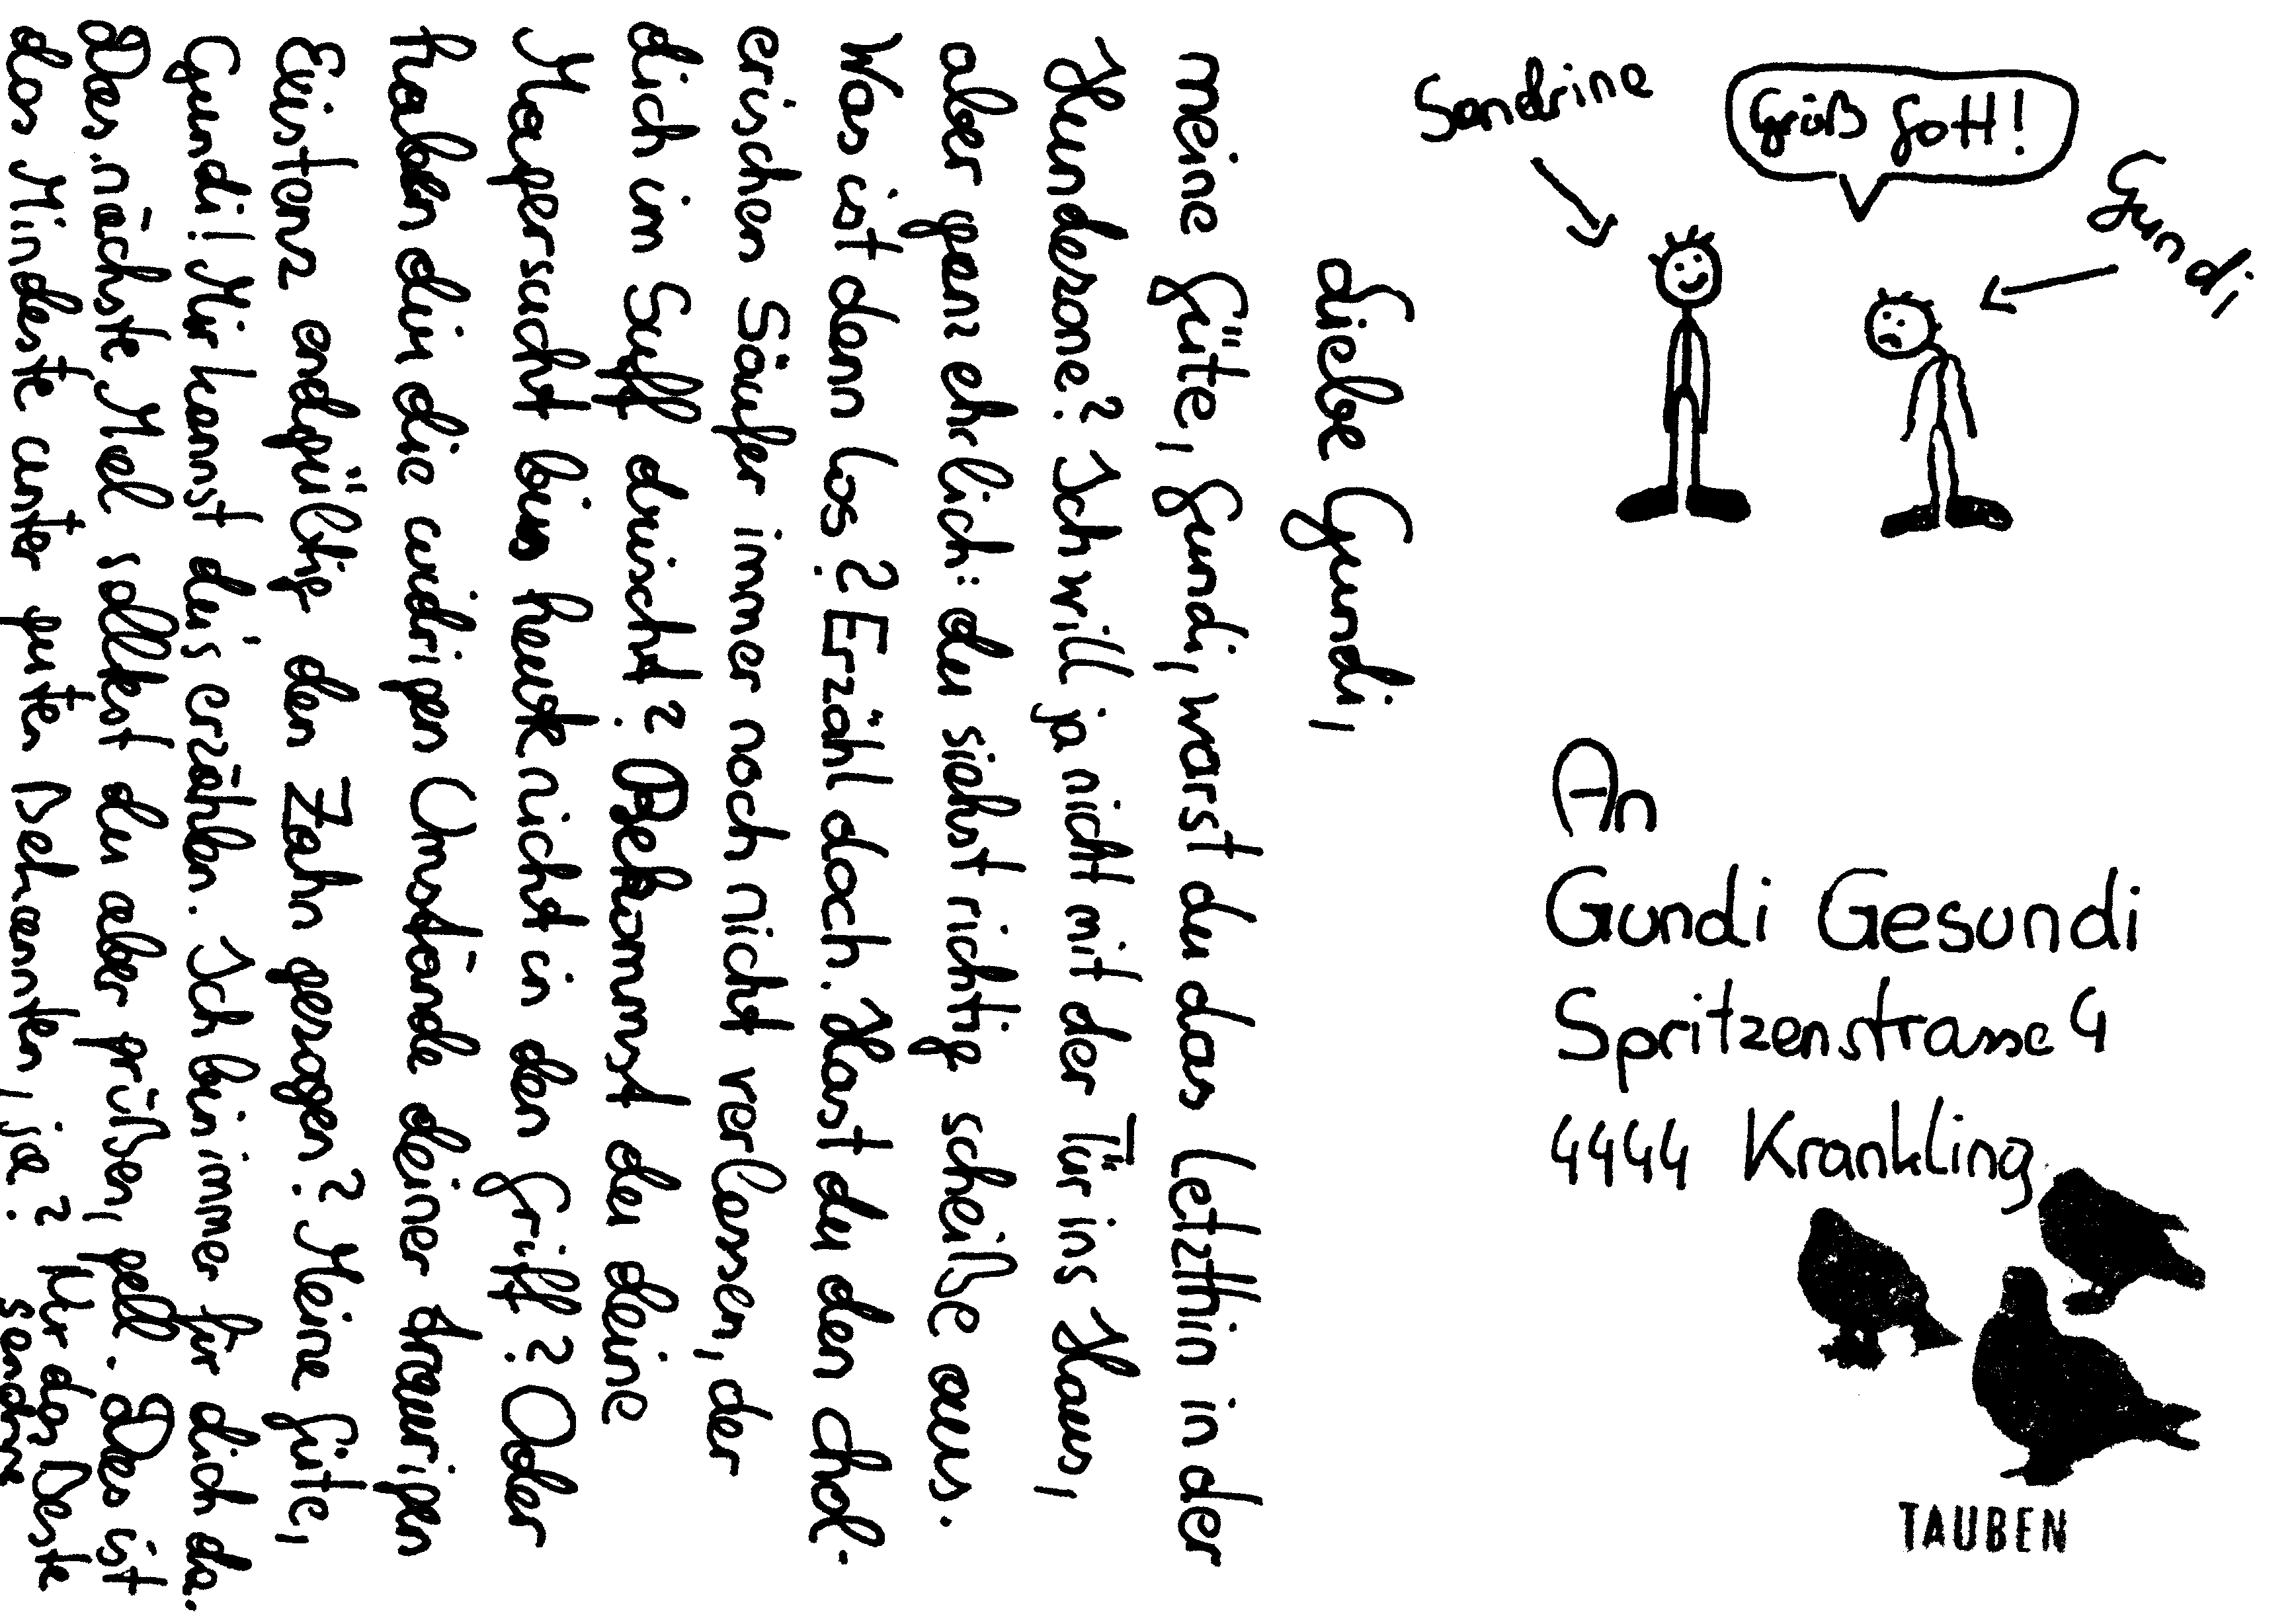 Sandrine
Grüß Gott!
Gundi
An
Gundi Gesundi
Spritzenstrasse 4
4444 Krankling
TAUBEN
Liebe Gundi,
meine Güte, Gundi, warst du das letzthin in der
Hundezone? Ich will ja nicht mit der Tür ins Haus,
aber ganz ehrlich: du siehst richtig scheiße aus.
Was ist denn los? Erzähl doch. Hast du den chol-
erischen Säufer immer noch nicht verlassen, der
dich im Suff drischt? Bekommst du deine
Magersucht bis heute nicht in den Griff? Oder
haben dir die widrigen Umstände deiner traurigen
Existenz endgültig den Zahn gezogen? Meine Güte,
Gundi! Mir kannst du's erzählen. Ich bin immer für dich da.
Das nächste Mal solltest du aber grüßen, gell. Das ist
das Mindeste unter guten Bekannten, ja? Nur das Beste
Sandrine